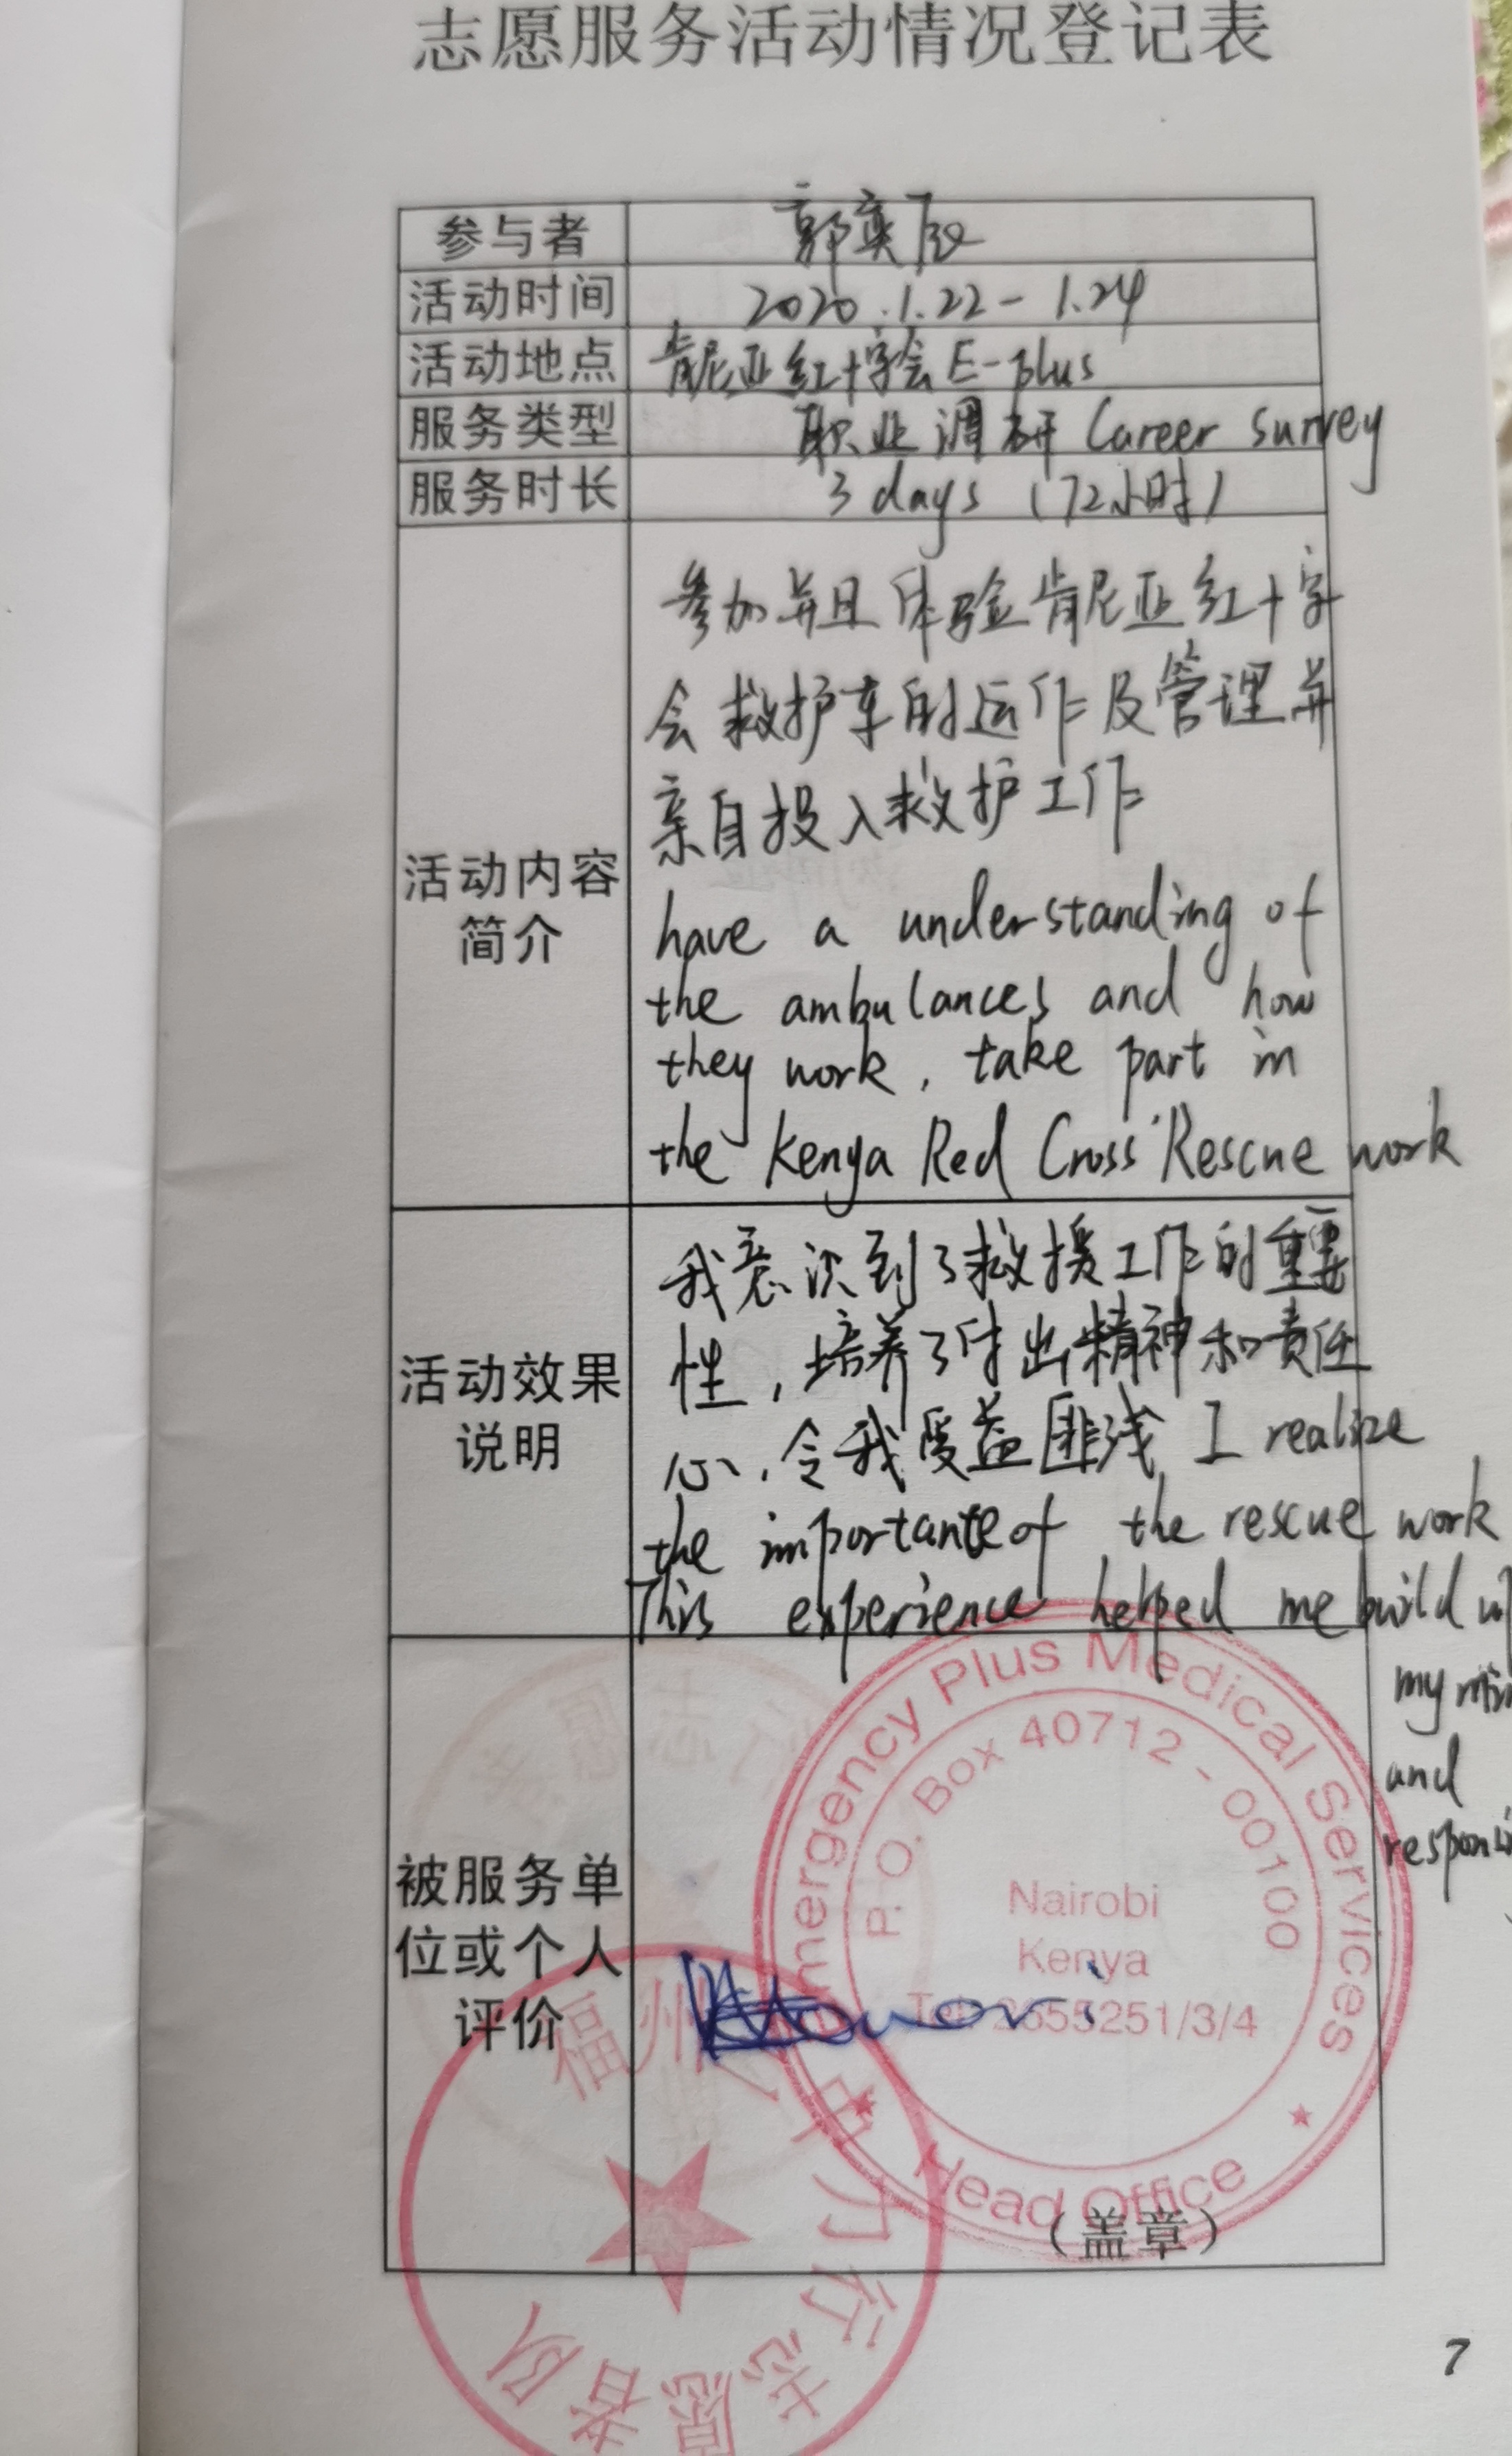 志愿服务活动情况登记表
参与者 郭奕辰
活动时间 2020.1.22-1.24
活动地点 肯尼亚红十字会E-plus
服务类型 职业调研 Career Survey
服务时长 3 days (72小时)
活动内容
简介
参加并且体验肯尼亚红十字
会救护车的运作及管理并
亲自投入救护工作
have a understanding of
the ambulances and how
they work, take part in
the Kenya Red Cross' Rescue work
活动效果
说明
我意识到了救援工作的重要
性,培养了付出精神和责任
心,令我受益匪浅 I realize
the importante of the rescue work
This experience helped me build
my
and
被服务单
位或个人
评价
Emergency Plus Medical Services
P. O. Box 40712 - 00100
Nairobi
Kenya
Tel: 2655251/3/4
Head Office
(盖章)
福州
力行志愿者队
7